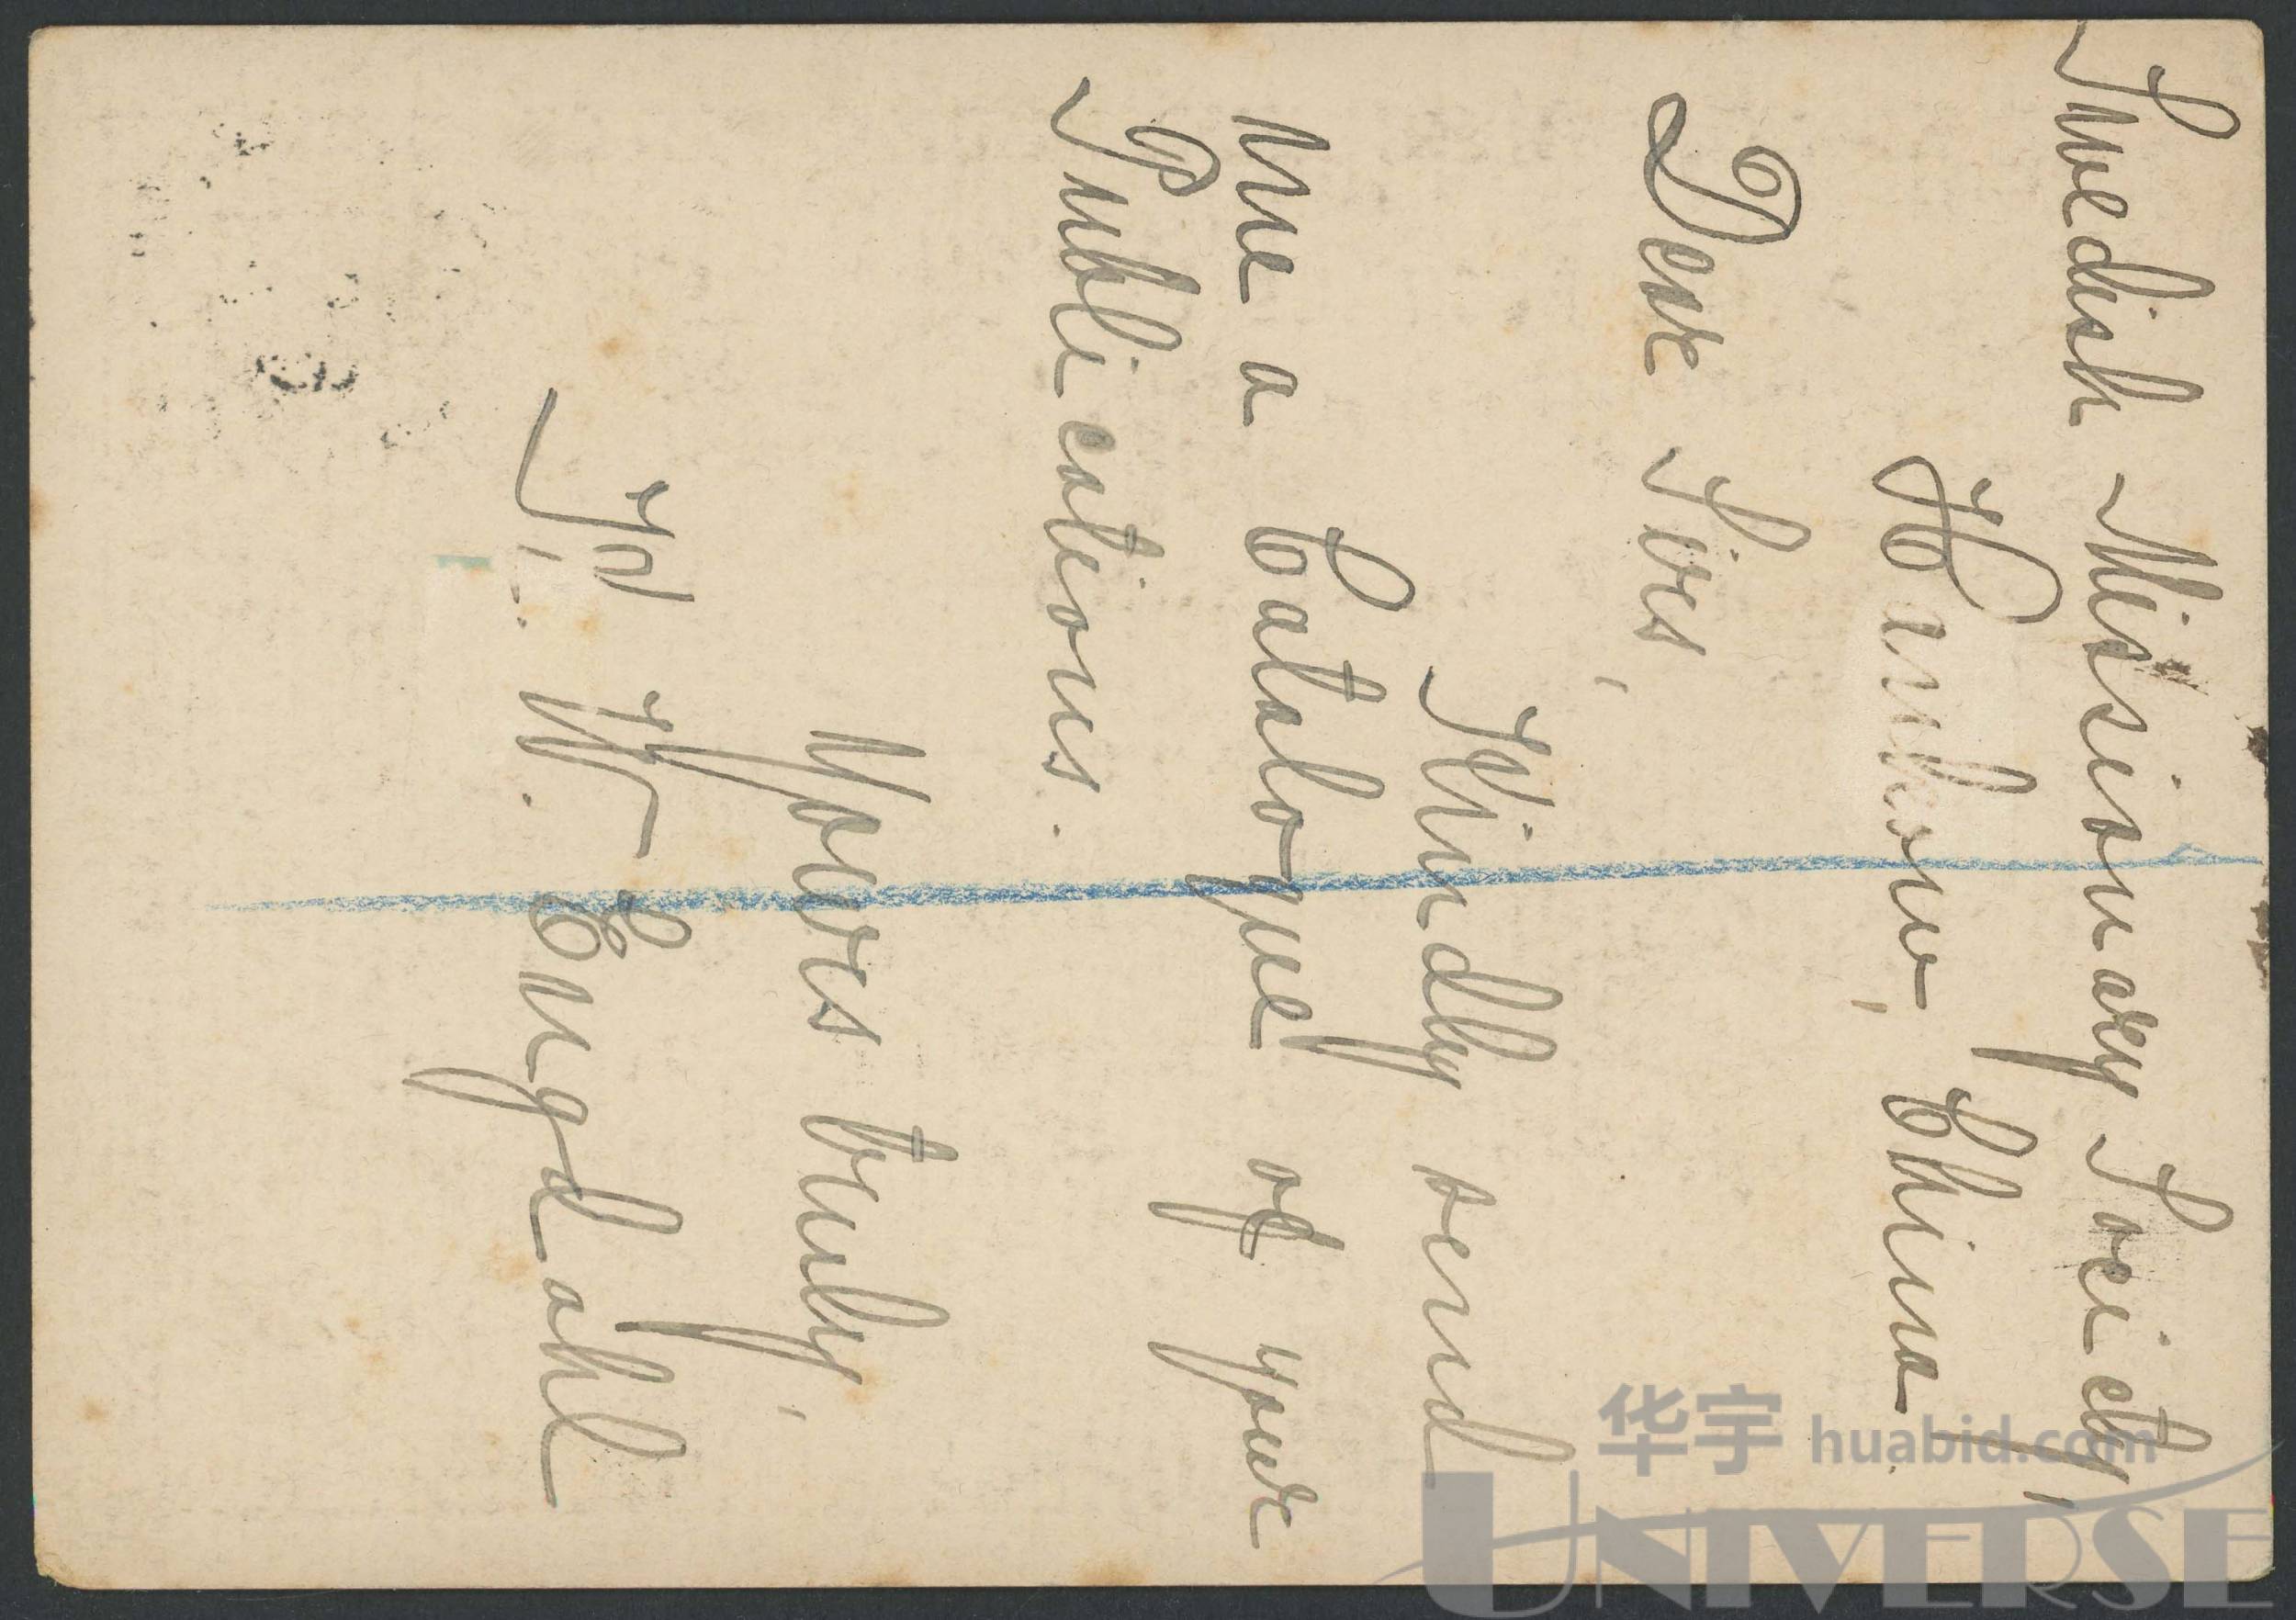 Swedish Missionary Society,
Hankow, China.
Dear Sirs,
Kindly send
me a Catalogue of your
Publications.
Yours truly,
W. Engdahl
华宇 huabid.com
UNIVERSE